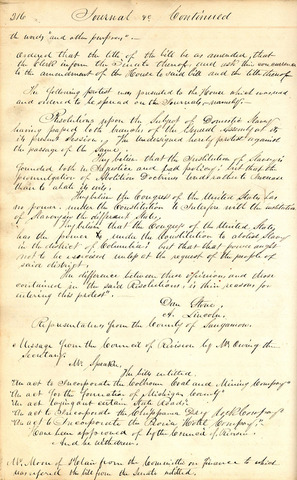 216 Journal &c Continued
the words "and other purposes".
Ordered that the title of the bill be as amended, that
the Clerk inform the Senate thereof, and ask their concurrence
to the amendment of the House to said bill and the title thereof
The following protest was presented to the House which was read
and ordered to be spread on the Journals, namely:
Resolutions upon the Subject of Domestic Slavery
having passed both branches of the General Assembly at its
present Session, The Undersigned hereby protest against
the passage of the Same,
They believe that the Institution of Slavery is
founded both on Injustice and bad policy; but that the
promulgation of Abolition Doctrines tends rather to increase
than to abate its evils,
They believe the Congress of the United States has
no power, under the Constitution to Interfere with the institution
of Slavery in the different States,
They believe that the Congress of the United States,
has the power under the Constitution to abolish Slavery
in the district of Columbia; but that that power ought
not to be exercised unless at the request of the people of
said district.
The difference between these opinions and those
contained in the said Resolutions, is their reasons for
entering this protest".
Dan Stone,
A. Lincoln,
Representatives from the County of Sangamon.
Message from the Council of Revision by Mr. Ewing the
Secretary.
Mr. Speaker,
The bills entitled,
"An act to Incorporate the Calhoun Coal and Mining Company"
"An act for the formation of Michigan County"
"An act
"An act to Incorporate the Company"
"An act to Incorporate the Peoria Hotel Company",
Have been approved of by the Council of Revision.
And he withdrew.
Mr. Moore of St. Clair from the Committee on Finance to which
was referred the bill from the Senate entitled.